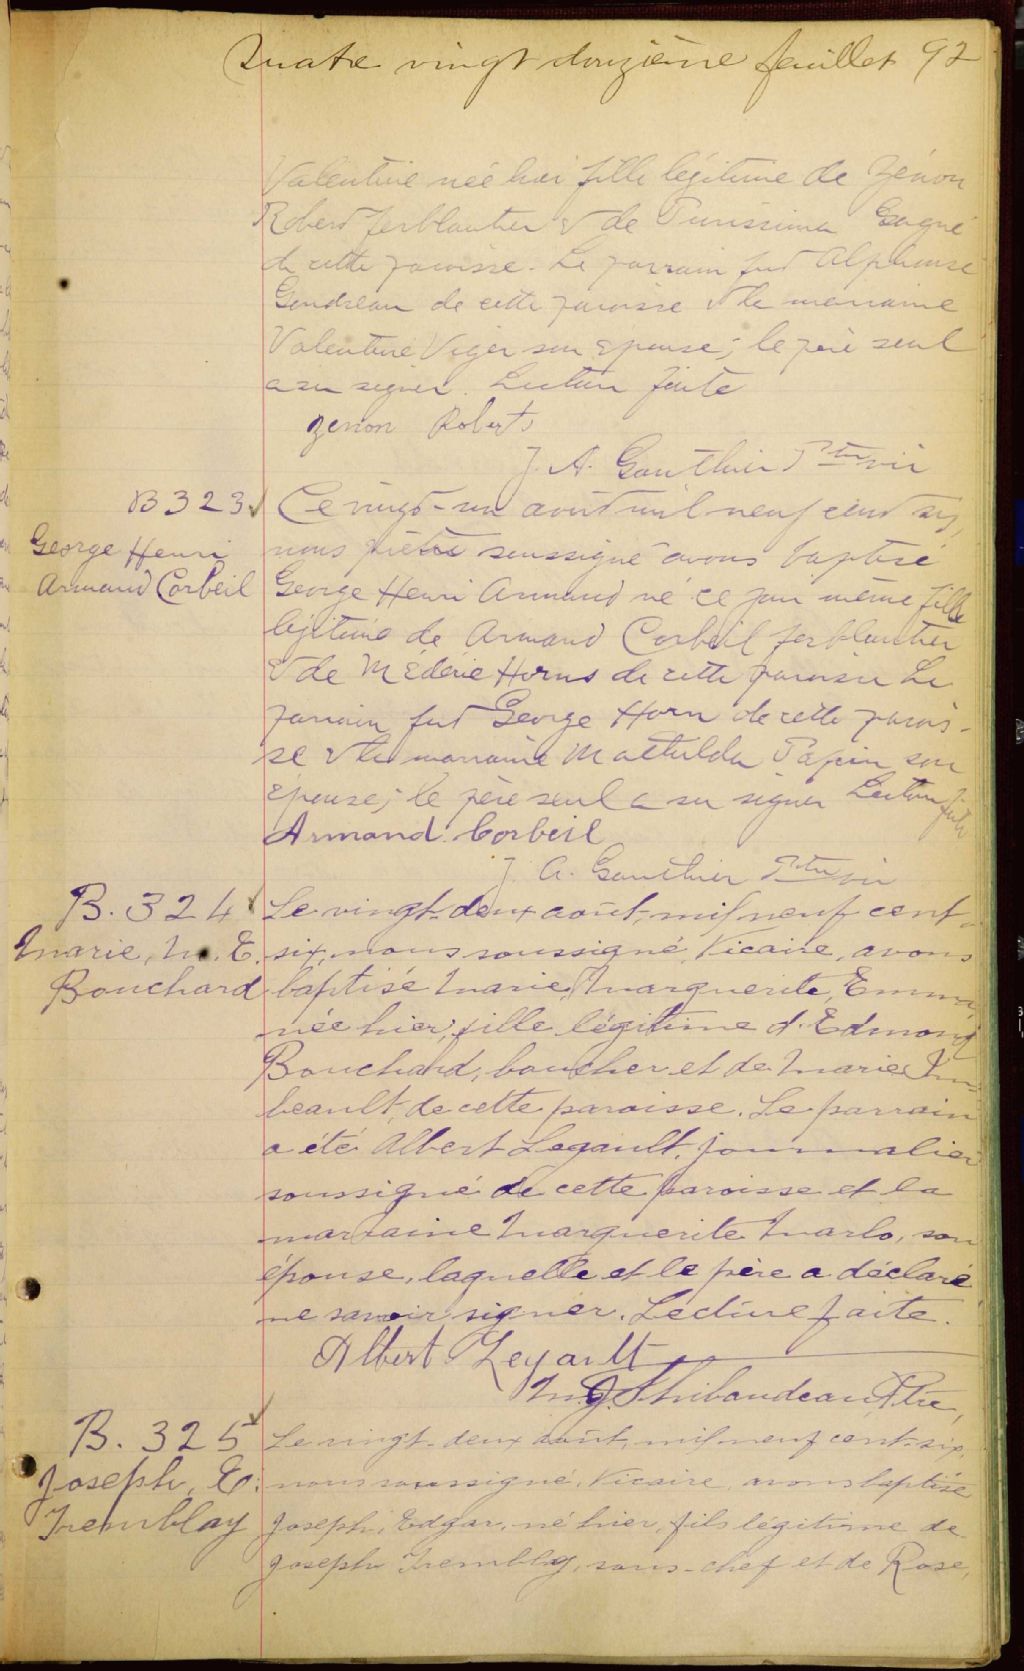 Quatre vingt douzième feuillet 92
Valentine née hier fille légitime de Zénon
Robert ferblantier & de Purissima Gagné
de cette paroisse. Le parrain fut Alphonse
Gendreau de cette paroisse & la marraine
Valentine Viger son épouse; le père seul
a su signer. Lecture faite
Zenon Robert
J. A. Gauthier Ptre vic
B 323
George Henri
Armand Corbeil
Ce vingt-un août mil neuf cent six,
nous prêtre soussigné avons baptisé
George Henri Armand né ce jour même fille
légitime de Armand Corbeil ferblantier
& de Médérie Horns de cette paroisse Le
parrain fut George Horn de cette parois-
se & la marraine Mathilda Papin son
épouse; le père seul a su signer Lecture faite
Armand Corbeil
J. A. Gauthier Ptre vic
B. 324
Marie, M. E.
Bouchard
Le vingt-deux août, mil neuf cent-
six, nous soussigné, Vicaire, avons
baptisé Marie, Marguerite, Emma,
née hier, fille légitime d'Edmond
Bouchard, boucher et de Marie Im-
beault, de cette paroisse. Le parrain
a été Albert Legault, journalier
soussigné de cette paroisse et la
marraine Marguerite Marlo, son
épouse, laquelle et le père a déclaré
ne savoir signer. Lecture faite.
Albert Legault
M. J. Thibaudeau, Ptre,
B. 325
Joseph, E.
Tremblay
Le vingt-deux août, mil neuf cent-six,
nous soussigné, Vicaire, avons baptisé
Joseph, Edgar, né hier, fils légitime de
Joseph Trembly, sous-chef et de Rose,